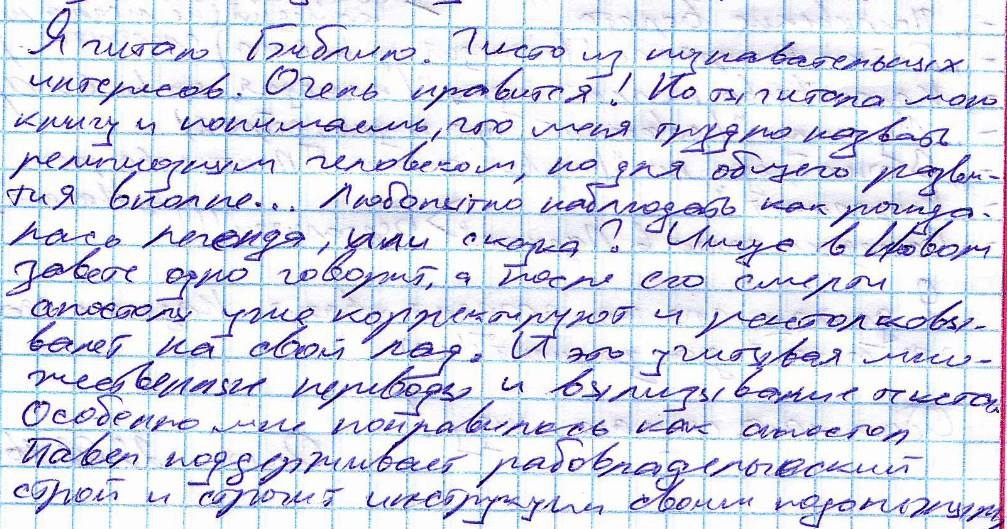 Я читаю Библию. Чисто из познавательных
интересов. Очень нравится! Но ты читала мою
книгу и понимаешь, что меня трудно назвать
религиозным человеком, но для общего разви-
тия вполне... Любопытно наблюдать как рожда-
лась легенда, или сказка? Иисус в Новом
завете одно говорит, а после его смерти
апостолы уже корректируют и растолковы-
вают на свой лад. И это учитывая мно-
жественные переводы и вылизывание текста.
Особенно мне понравилось как апостол
Павел поддерживает рабовладельческий
строй и строчит инструкции своим